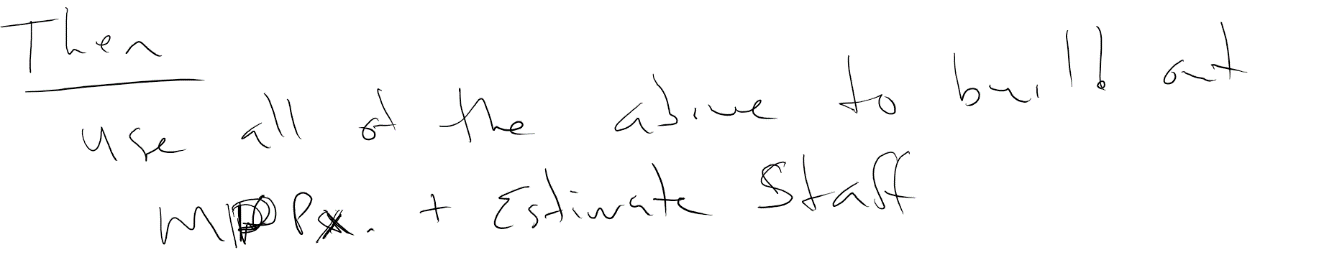 Then
use all of the above to build out
MPPx. + Estimate Staff